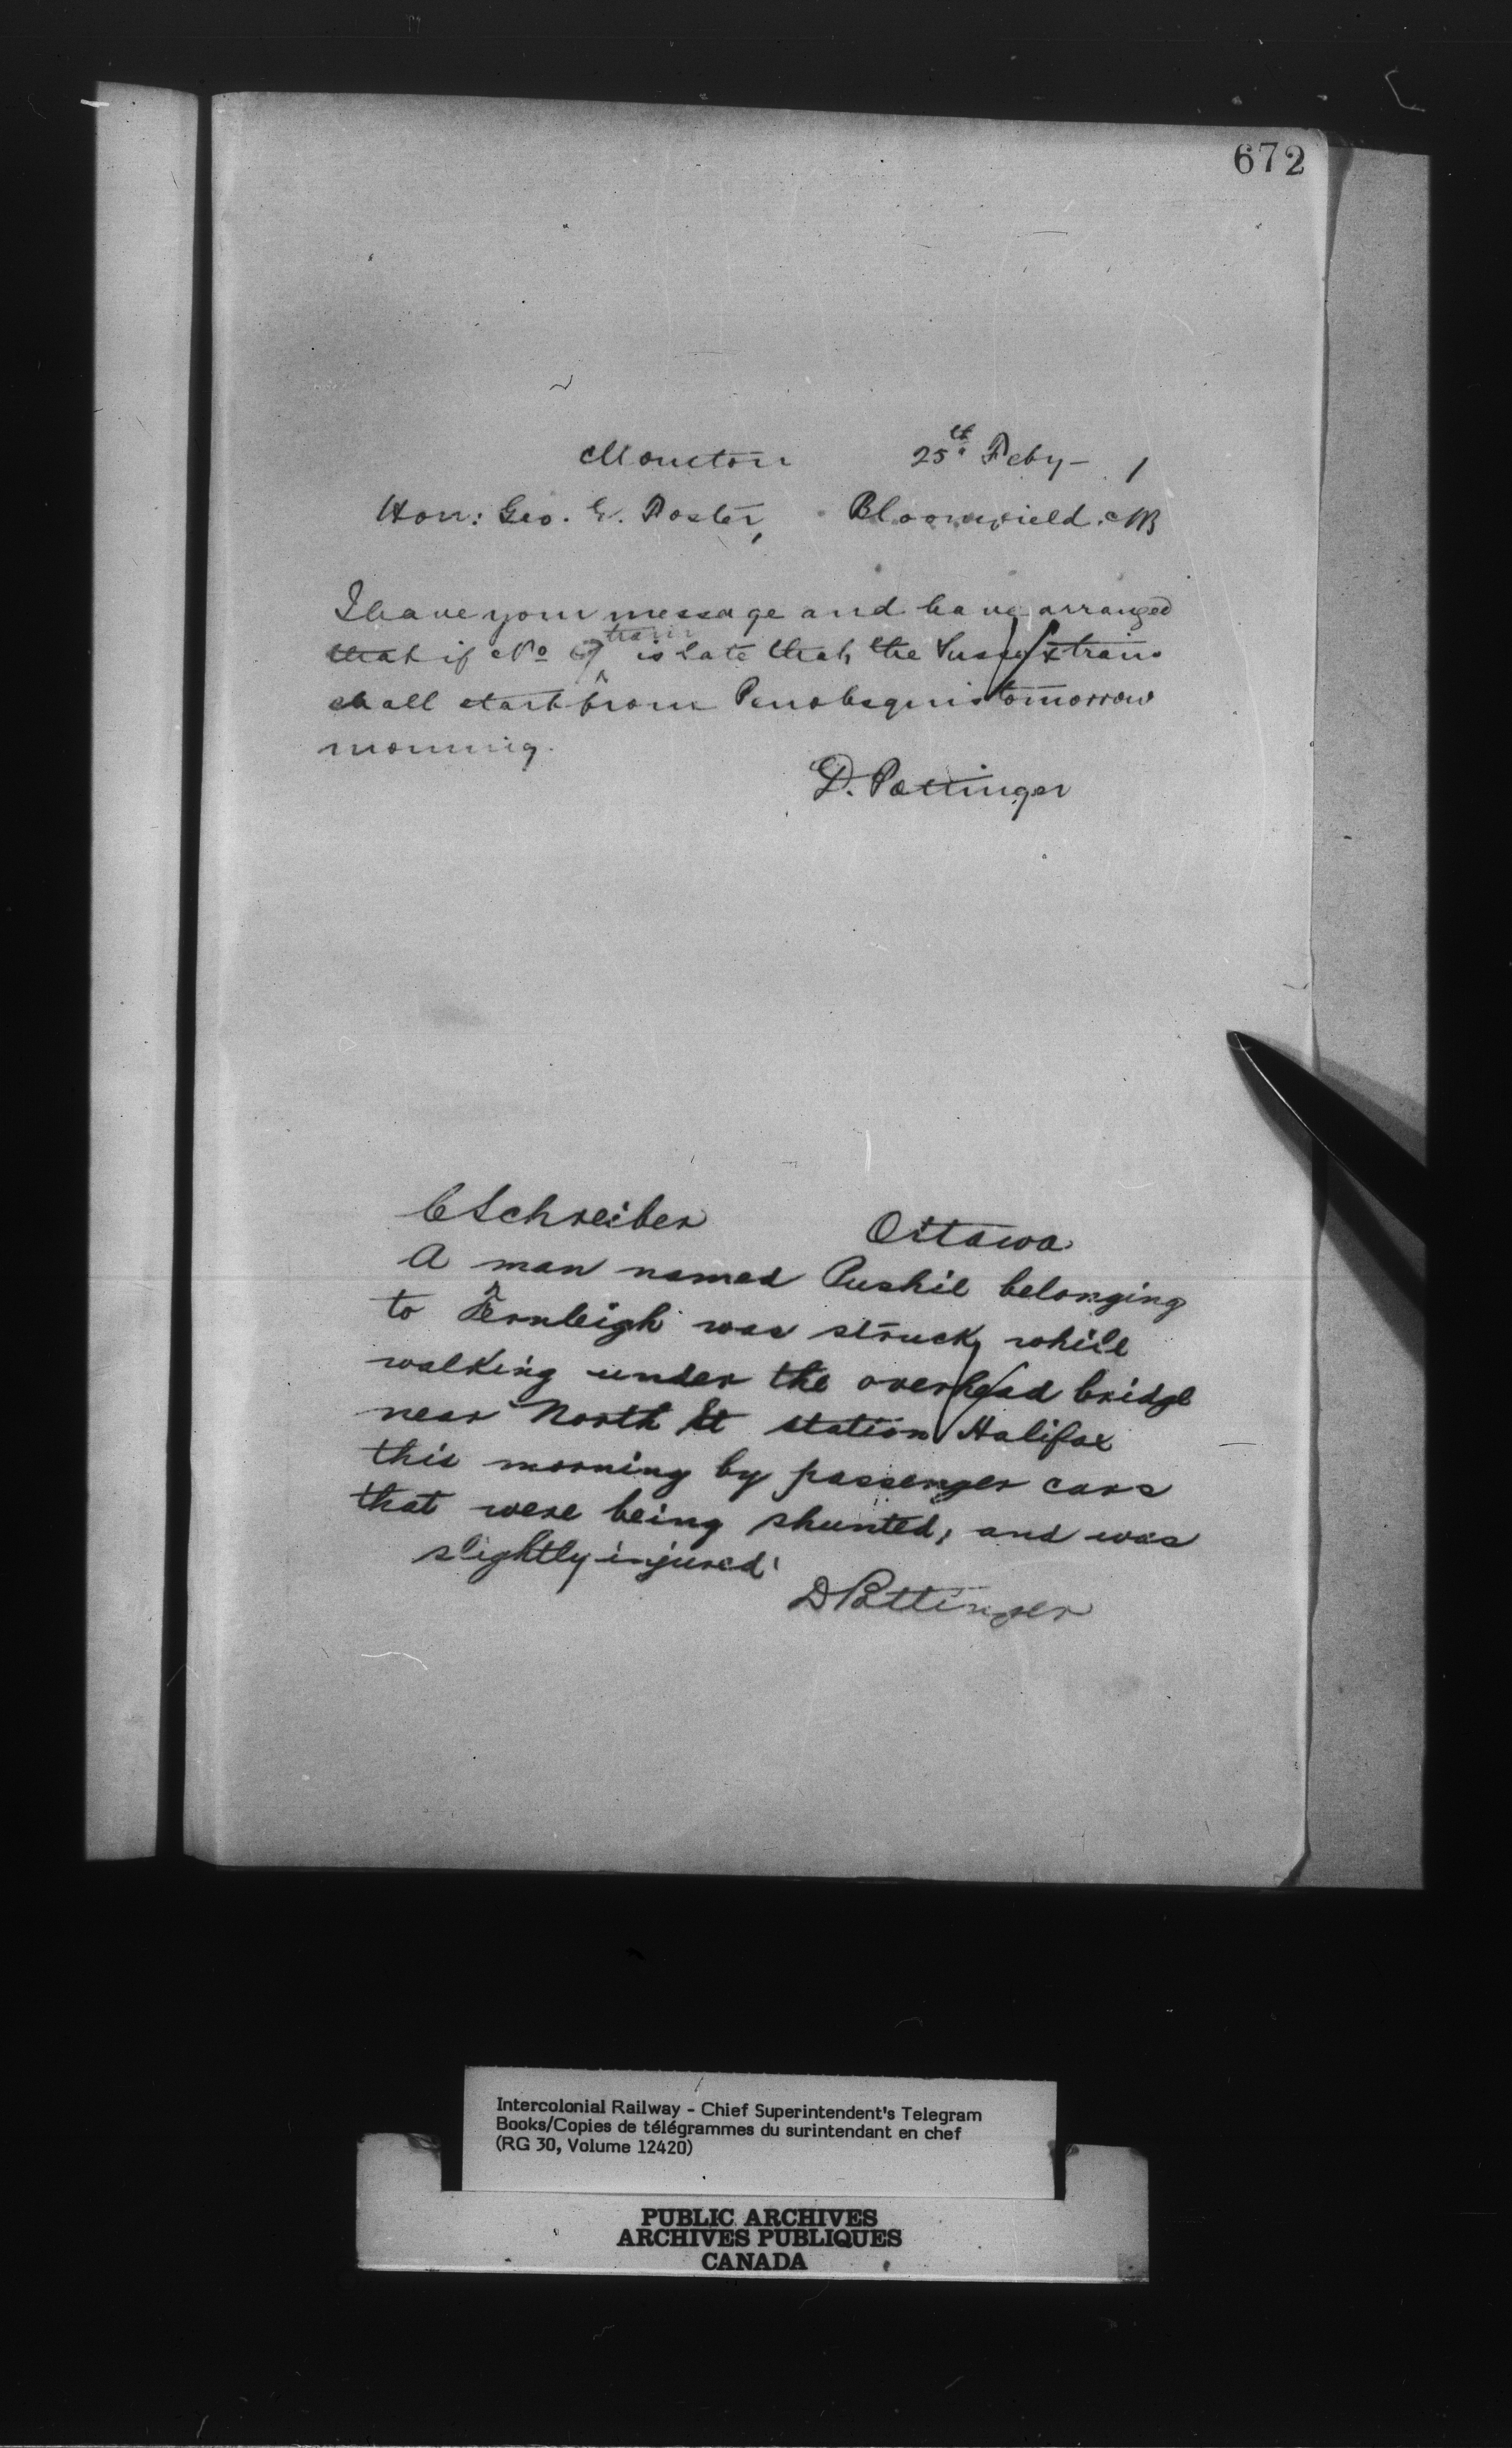 672
Moncton 25th Feby - 1
Hon: Geo. E. Foster, Bloomfield. NB
I have your message and have arranged
that if No 9 train is late that the Sussex train
shall start from Penobsquis tomorrow
morning.
D. Pottinger
C Schreiber Ottawa
A man named Pushie belonging
to Fernleigh was struck while
walking under the overhead bridge
near North St station Halifax
this morning by passenger cars
that were being shunted, and was
slightly injured.
D Pottinger
Intercolonial Railway - Chief Superintendent's Telegram
Books/Copies de télégrammes du surintendant en chef
(RG 30, Volume 12420)
PUBLIC ARCHIVES
ARCHIVES PUBLIQUES
CANADA